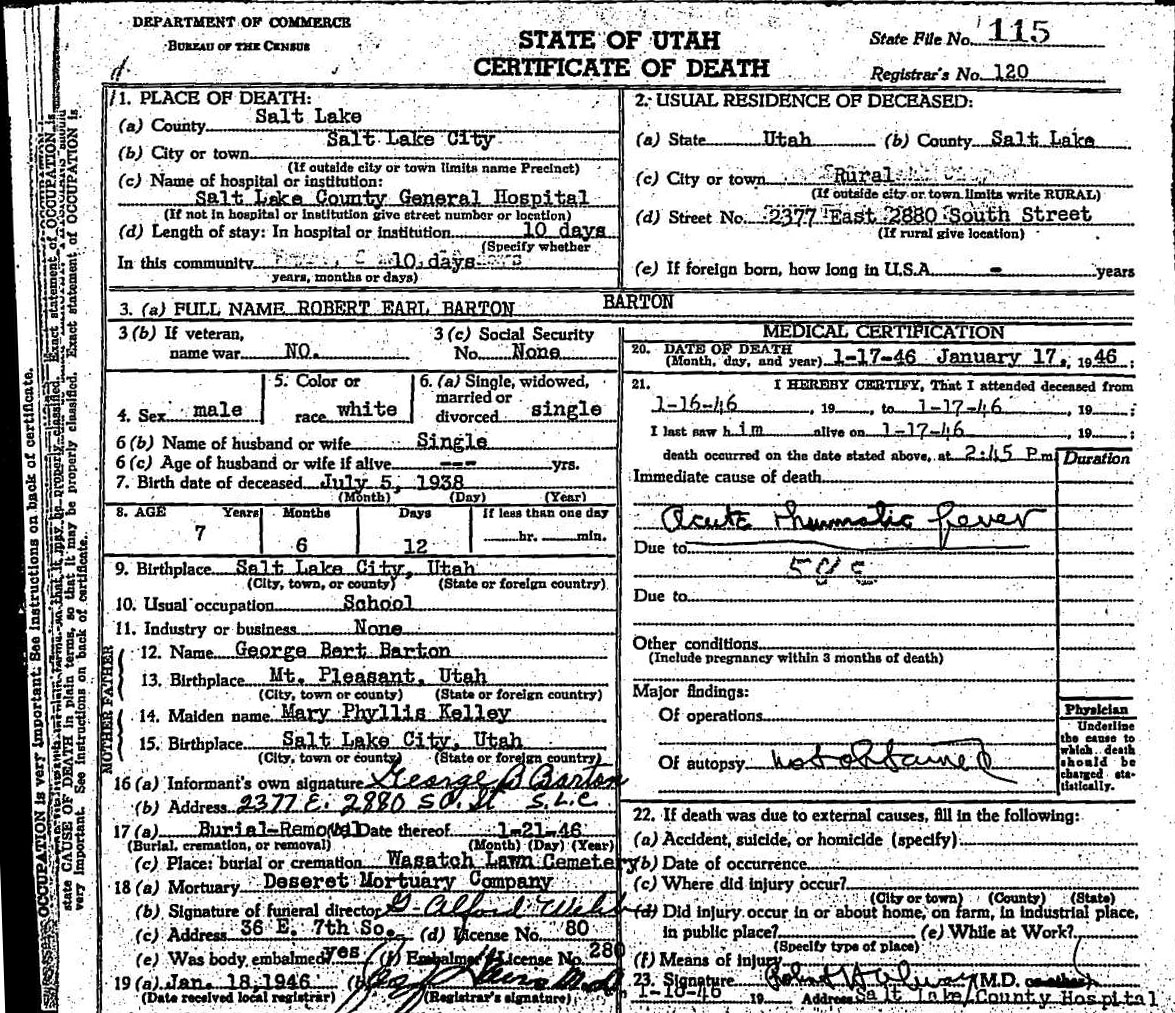 DEPARTMENT OF COMMERCE
BUREAU OF THE CENSUS
STATE OF UTAH
CERTIFICATE OF DEATH
State File No. 115
Registrar's No. 120
1. PLACE OF DEATH:
(a) County Salt Lake
(b) City or town Salt Lake City
(If outside city or town limits name Precinct)
(c) Name of hospital or institution:
Salt Lake County General Hospital
(If not in hospital or institution give street number or location)
(d) Length of stay: In hospital or institution 10 days
(Specify whether
In this community 10 days
years, months or days)
2. USUAL RESIDENCE OF DECEASED:
(a) State Utah (b) County Salt Lake
(c) City or town Rural
(If outside city or town limits write RURAL)
(d) Street No. 2377 East 2880 South Street
(If rural give location)
(e) If foreign born, how long in U.S.A. - years
3. (a) FULL NAME ROBERT EARL BARTON BARTON
3 (b) If veteran,
name war NO.
3 (c) Social Security
No. None
4. Sex male
5. Color or
race white
6. (a) Single, widowed,
married or
divorced single
6 (b) Name of husband or wife Single
6 (c) Age of husband or wife if alive --- yrs.
7. Birth date of deceased July 5, 1938
(Month) (Day) (Year)
8. AGE Years Months Days If less than one day
7 6 12 hr. min.
9. Birthplace Salt Lake City, Utah
(City, town, or county) (State or foreign country)
10. Usual occupation School
11. Industry or business None
FATHER
12. Name George Bert Barton
13. Birthplace Mt. Pleasant, Utah
(City, town or county) (State or foreign country)
MOTHER
14. Maiden name Mary Phyllis Kelley
15. Birthplace Salt Lake City, Utah
(City, town or county) (State or foreign country)
16 (a) Informant's own signature George B Barton
(b) Address 2377 E. 2880 SO. St S.L.C.
17 (a) Burial-Removal (b) Date thereof 1-21-46
(Burial, cremation, or removal) (Month) (Day) (Year)
(c) Place: burial or cremation Wasatch Lawn Cemetery
18 (a) Mortuary Deseret Mortuary Company
(b) Signature of funeral director G. Alford
(c) Address 36 E. 7th So. (d) License No. 80
(e) Was body embalmed yes (f) Embalmer's License No. 280
19 (a) Jan. 18, 1946 (b) M.D.
(Date received local registrar) (Registrar's signature)
MEDICAL CERTIFICATION
20. DATE OF DEATH
(Month, day, and year) 1-17-46 January 17, 1946;
21. I HEREBY CERTIFY, That I attended deceased from
1-16-46, 19 , to 1-17-46, 19 ;
I last saw him alive on 1-17-46, 19 ;
death occurred on the date stated above, at 2:45 P.m.
Duration
Immediate cause of death
Acute rheumatic fever
Due to
Due to
Other conditions
(Include pregnancy within 3 months of death)
Major findings:
Of operations
Of autopsy not obtained
Physician
Underline
the cause to
which death
should be
charged sta-
tistically.
22. If death was due to external causes, fill in the following:
(a) Accident, suicide, or homicide (specify)
(b) Date of occurrence
(c) Where did injury occur?
(City or town) (County) (State)
(d) Did injury occur in or about home, on farm, in industrial place,
in public place? (e) While at Work?
(Specify type of place)
(f) Means of injury
23. Signature Robert M.D.
19 Address Salt Lake County Hospital
OCCUPATION is very important. See instructions on back of certificate.
state CAUSE OF DEATH in plain terms, so that it may be properly classified. Exact statement of OCCUPATION is
very important. See instructions on back of certificate.